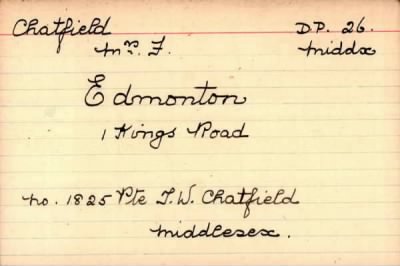 Chatfield D.P. 26.
Mr. F. Middx
Edmonton
1 Kings Road
No. 1825 Pte F.W. Chatfield
Middlesex.